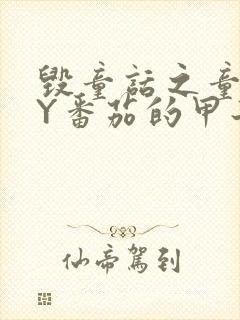 毁童话之童
Y番茄的甲
仙帝驾到